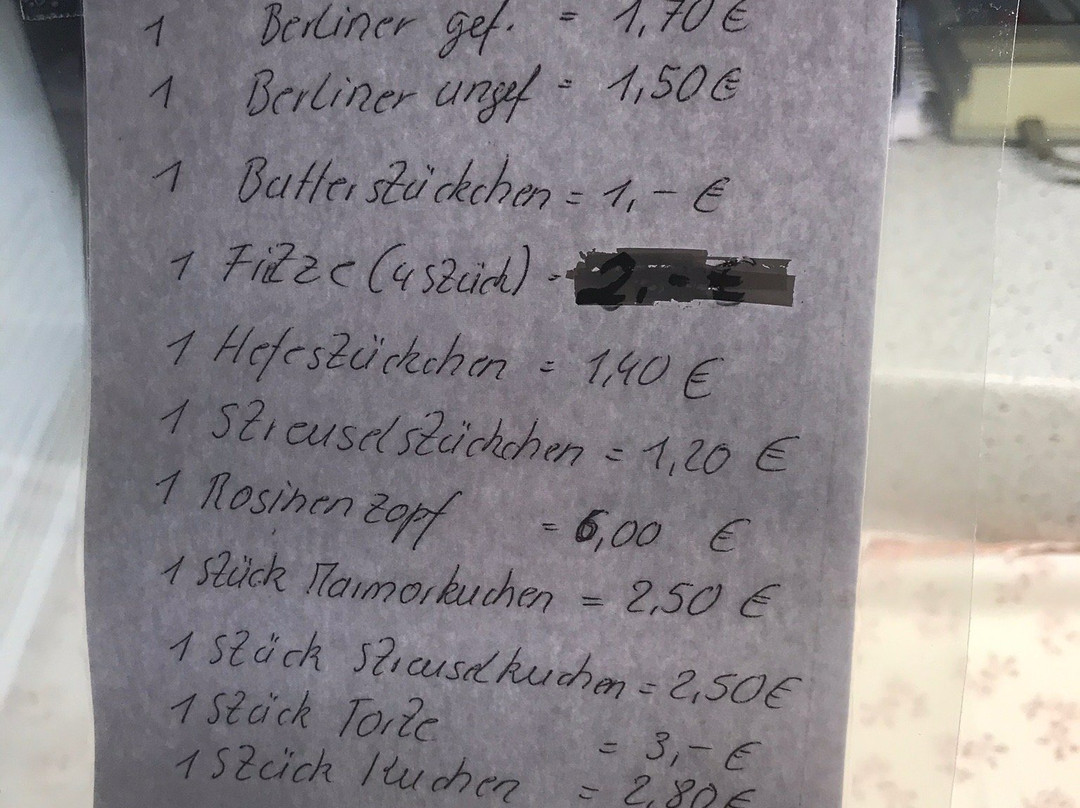 1 Berliner gef. = 1,70 €
1 Berliner ungef = 1,50 €
1 Butterstückchen = 1,- €
1 Fitze (4 Stück) = 2,- €
1 Hefestückchen = 1,40 €
1 Streuselstückchen = 1,20 €
1 Rosinenzopf = 6,00 €
1 Stück Marmorkuchen = 2,50 €
1 Stück Streuselkuchen = 2,50 €
1 Stück Torte = 3,- €
1 Stück Kuchen = 2,80 €